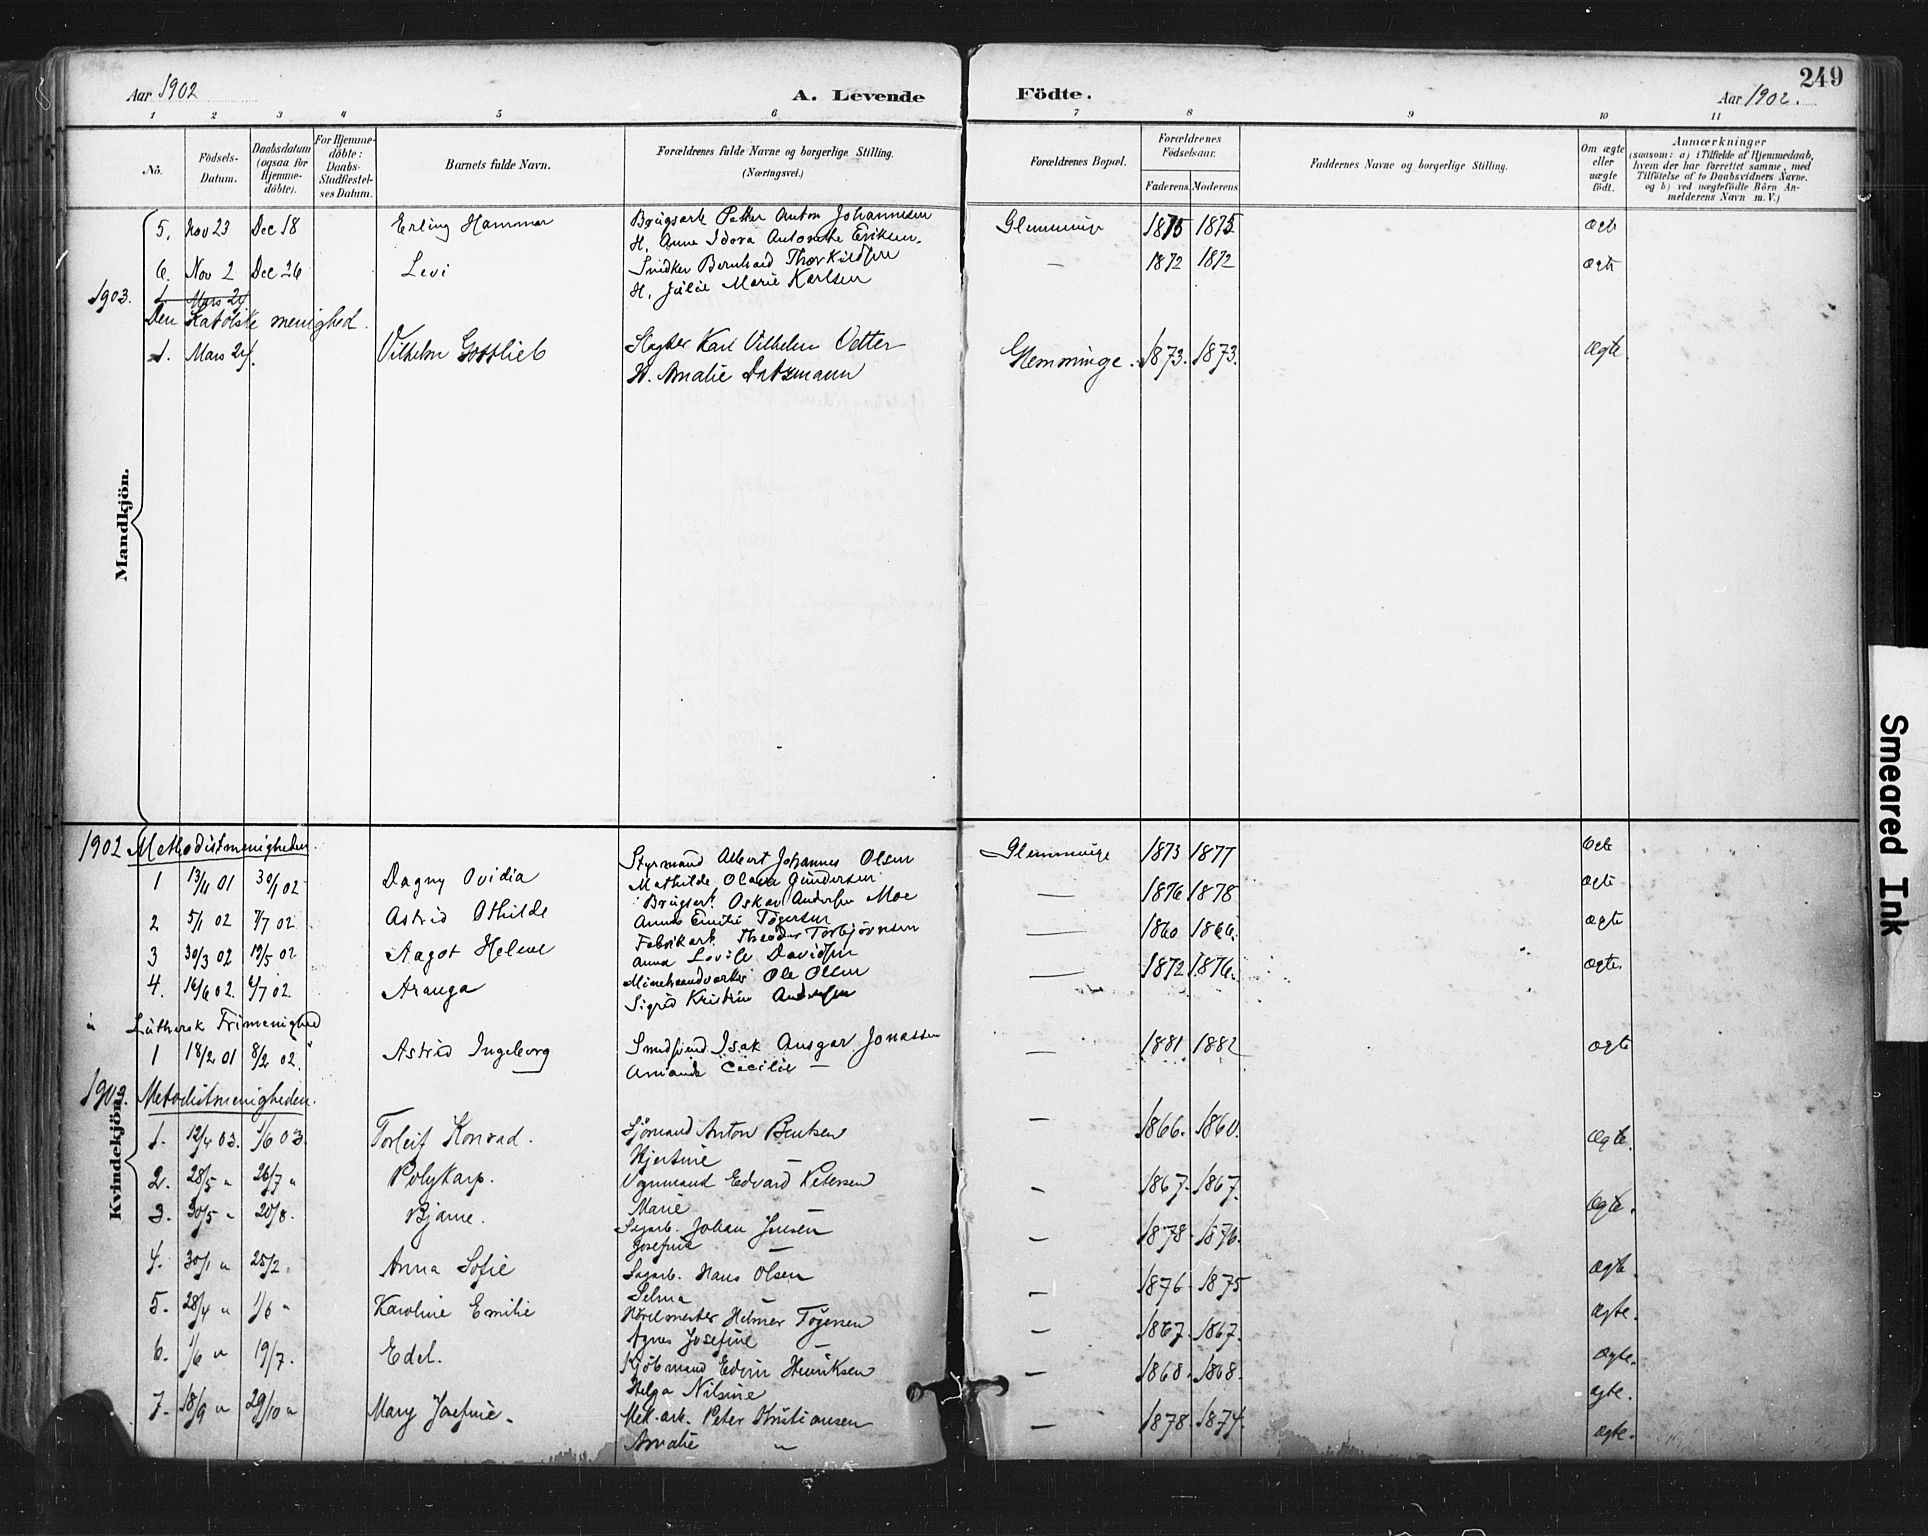 249
Aar 1902
A. Levende Födte.
Aar 1902.
1 2 3 4 5 6 7 8 9 10 11
No.
Födsels-Datum.
Daabsdatum (ogsaa for Hjemme-döbte).
For Hjemme-döbte: Daabs-Stadfæstel-ses Datum.
Barnets fulde Navn.
Forældrenes fulde Navne og borgerlige Stilling.
(Næringsvei.)
Forældrenes Bopæl.
Forældrenes Födselsaar.
Faderens. Moderens.
Faddernes Navne og borgerlige Stilling.
Om ægte eller uægte födt.
Anmærkninger
(saasom: a) i Tilfælde af Hjemmedaab, hvem der har forrettet samme, med Tilföielse af to Daabsvidners Navne, og b) ved uægtefödte Börn An-melderens Navn m. V.)
Mandkjön.
5. Nov 23 Dec 18 Erling Hammer Brugsarb Petter Anton Johannesen Glemminge 1875 1875 Ægte
H. Anne Idora Antonette Eriksen.
6. Nov 2 Dec 26 Levi Snedker Bernhard Thorkildsen — 1872 1872 Ægte
H. Julie Marie Karlsen
1903. 1. Mars 24
Den Katolske menighed.
1. Mars 24. Vilhelm Gottlieb Slagter Karl Vilhelm Vetter Glemminge. 1873. 1873. Ægte.
H. Amalie
Kvindekjön.
1902 Methodistmenigheden.
1 13/11 01 30/1 02 Dagny Ovidia Styrmand Albert Johannes Olsen Glemminge 1873 1877 Ægte
Mathilde Olava Gundersen
2 5/1 02 7/7 02 Astrid Othilde Brugsarb. Oskar Andersen Moe — 1876 1878 Ægte
Anna Emilie Tøgersen
3 30/3 02 19/5 02 Aagot Helene Fabrikarb. Theodor Torbjørnsen — 1860 1866. Ægte
Anna Lovise Davidsen
4. 16/6 02. 6/7 02 Aranga Ole Olsen — 1872 1876. Ægte
Sigrid Kristine Andersen
" Luthersk Frimenighed
1 18/2 01 8/2 02 Astrid Ingeborg Isak Ansgar Jonassen — 1881 1882 Ægte
Amanda Cecilie —
1903. Metodistmenigheden.
1. 12/4 03. 1/6 03. Torleif Konrad. Sjömand Anton Bentsen — 1866. 1860. Ægte.
Hjertine —
2. 28/5 " 26/7 " Polykarp. Vognmand Edvard Petersen — 1867. 1867. Ægte.
Marie —
3. 30/5 " 20/8. Bjarne. Sagarb. Johan Jensen — 1878. 1876. Ægte.
Josefine —
4. 30/1 " 25/2. Anna Sofie Sagarb. Hans Olsen 1876. 1875 Ægte.
Selma —
5. 28/4 " 1/6 " Karoline Emilie Helmer Tøgersen — 1867. 1867. Ægte.
Agnes Josefine —
6. 1/6 " 19/7. Edel. Kjöbmand Edvin Henriksen — 1868. 1868. Ægte.
Helga Nilsine
7. 18/9 " 29/10 " Mary Josefine. Mek. arb. Peter Kristiansen — 1878. 1874. Ægte.
Amalie "
Smeared Ink